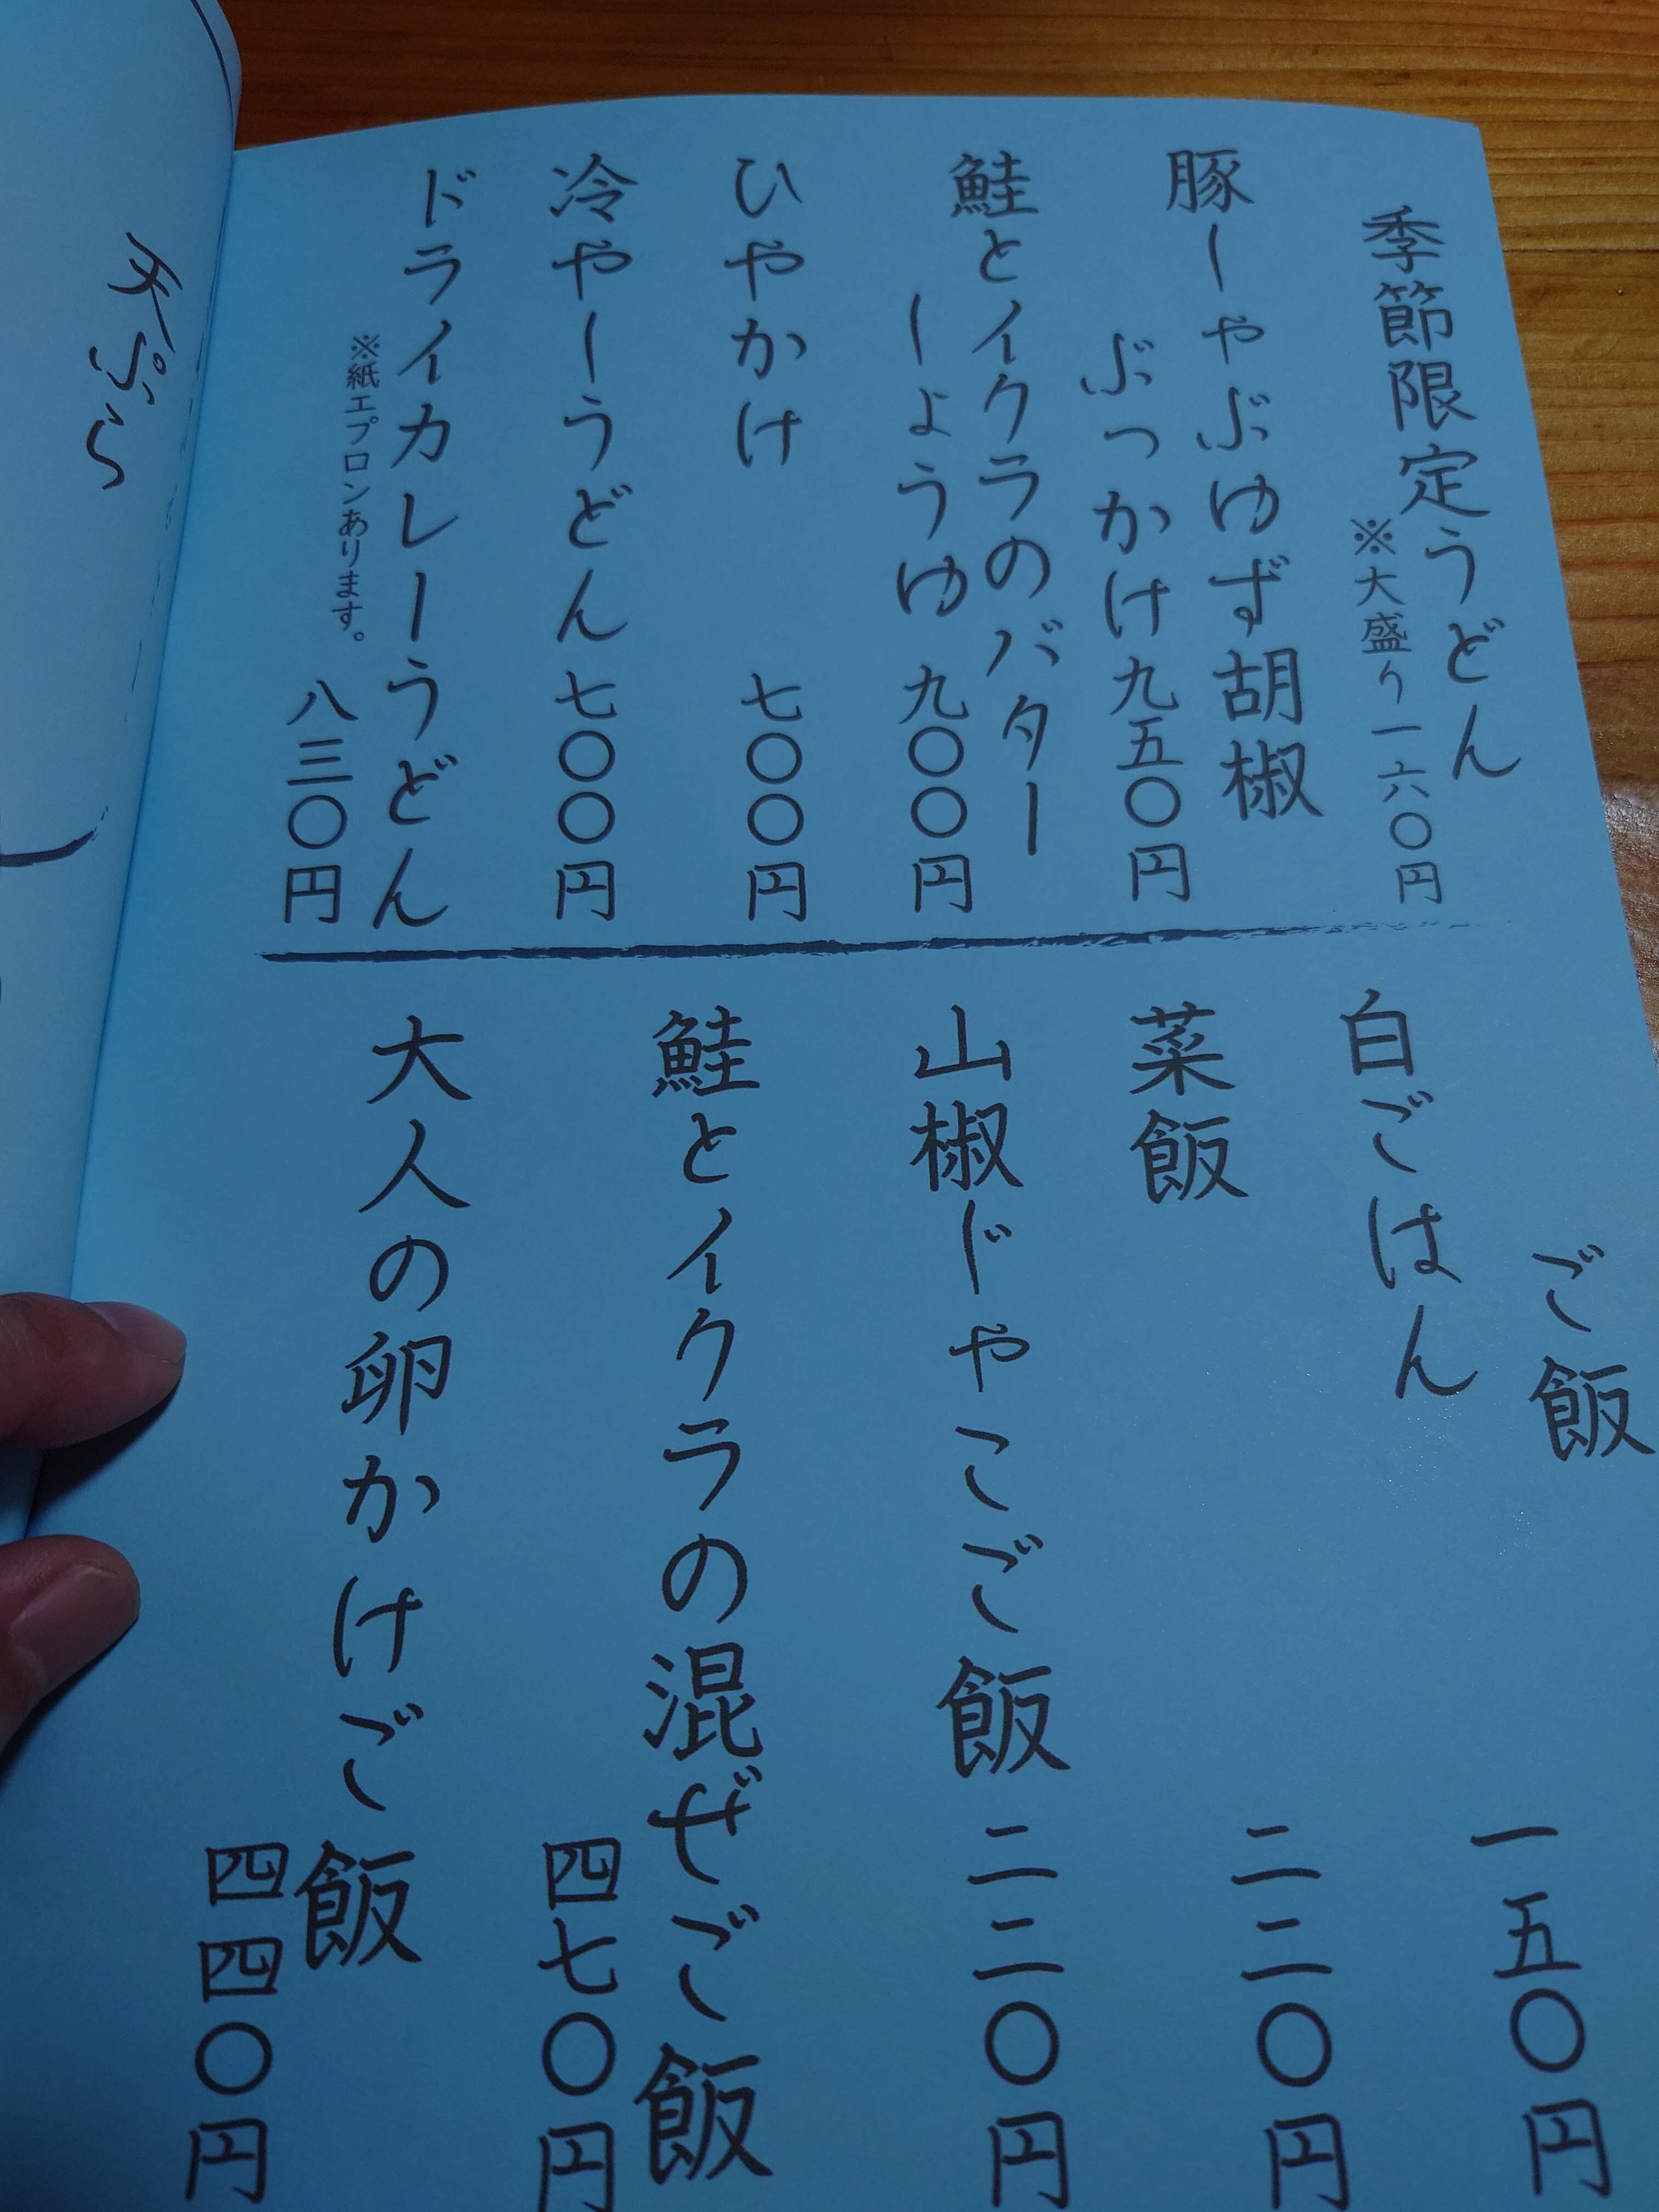 季節限定うどん
※大盛り一六〇円
豚しゃぶゆず胡椒
ぶっかけ九五〇円
鮭とイクラのバター
しょうゆ 九〇〇円
ひやかけ 七〇〇円
冷やしうどん 七〇〇円
ドライカレーうどん
※紙エプロンあります。
八三〇円
ご飯
白ごはん 一五〇円
菜飯 二二〇円
山椒じゃこご飯 二二〇円
鮭とイクラの混ぜご飯
四七〇円
大人の卵かけご飯
四四〇円
天ぷら